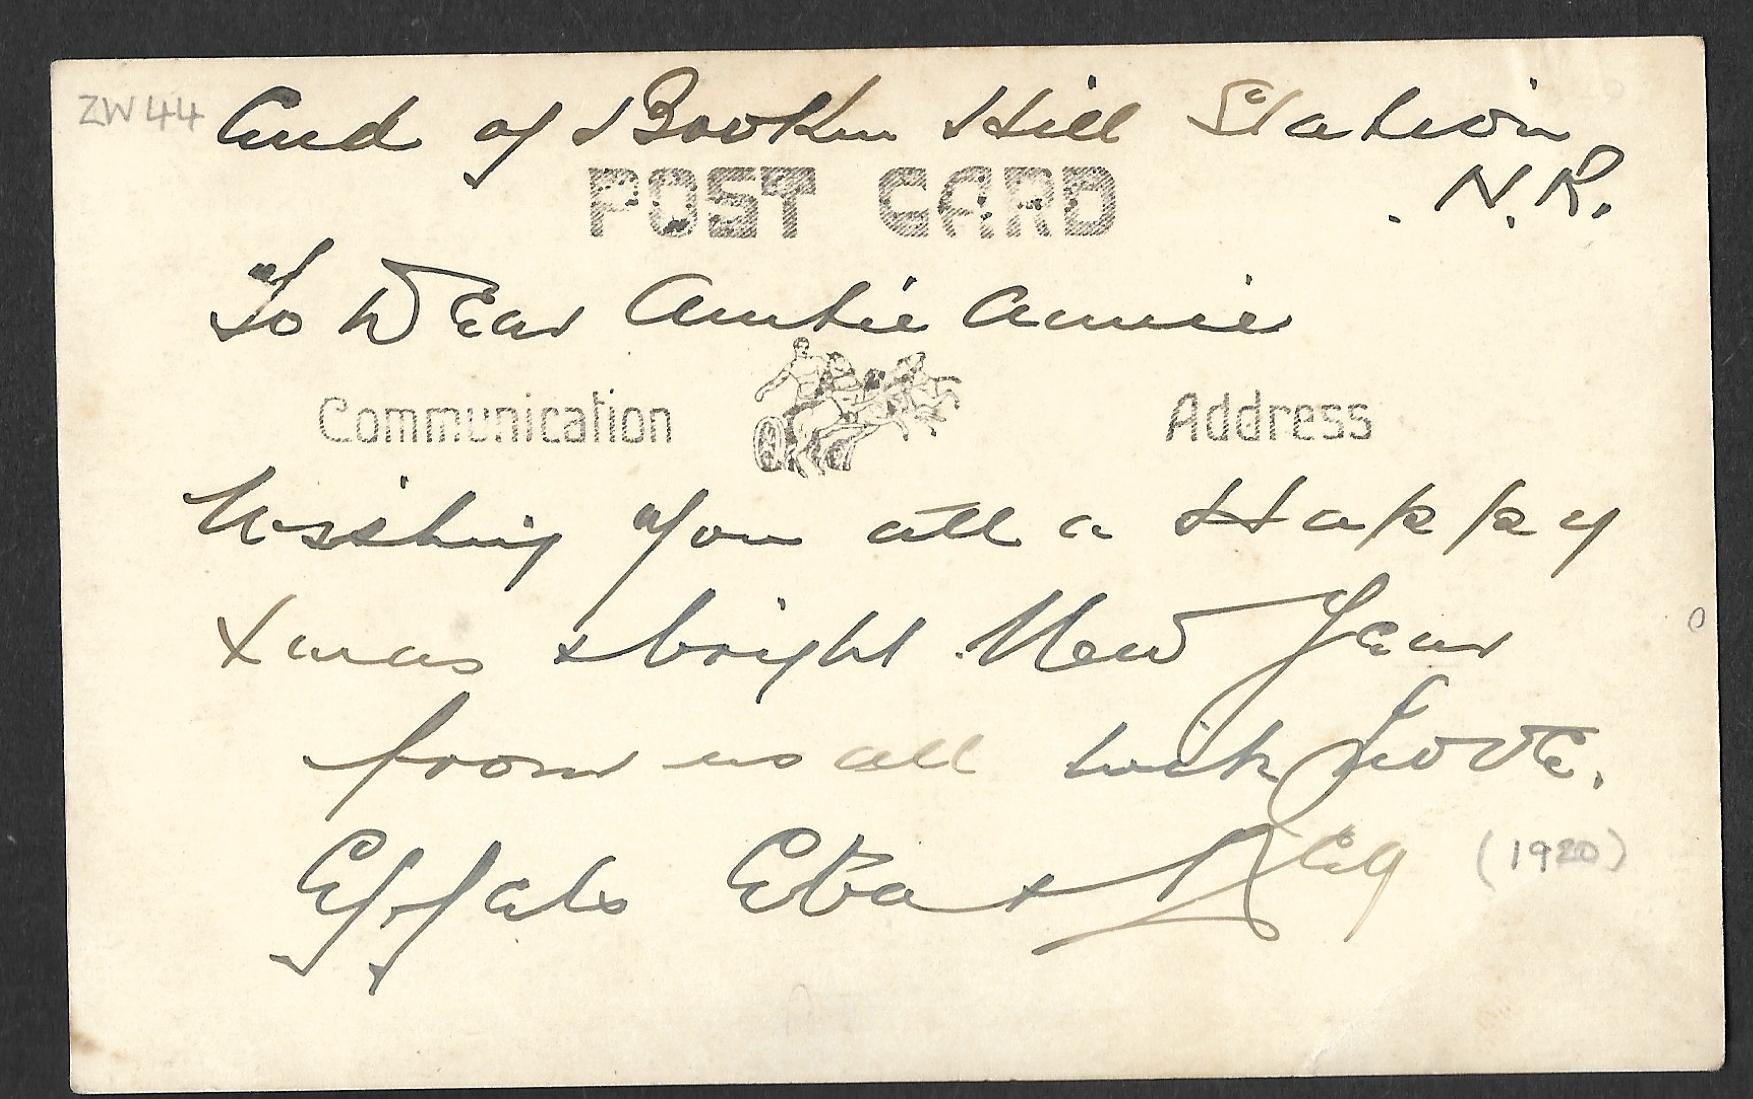 ZW44 End of Broken Hill Station
N.R.
POST CARD
To Dear Auntie Annie
Communication Address
Wishing you all a Happy
Xmas & bright New Year
from us all with Love.
Eva & Reg (1920)